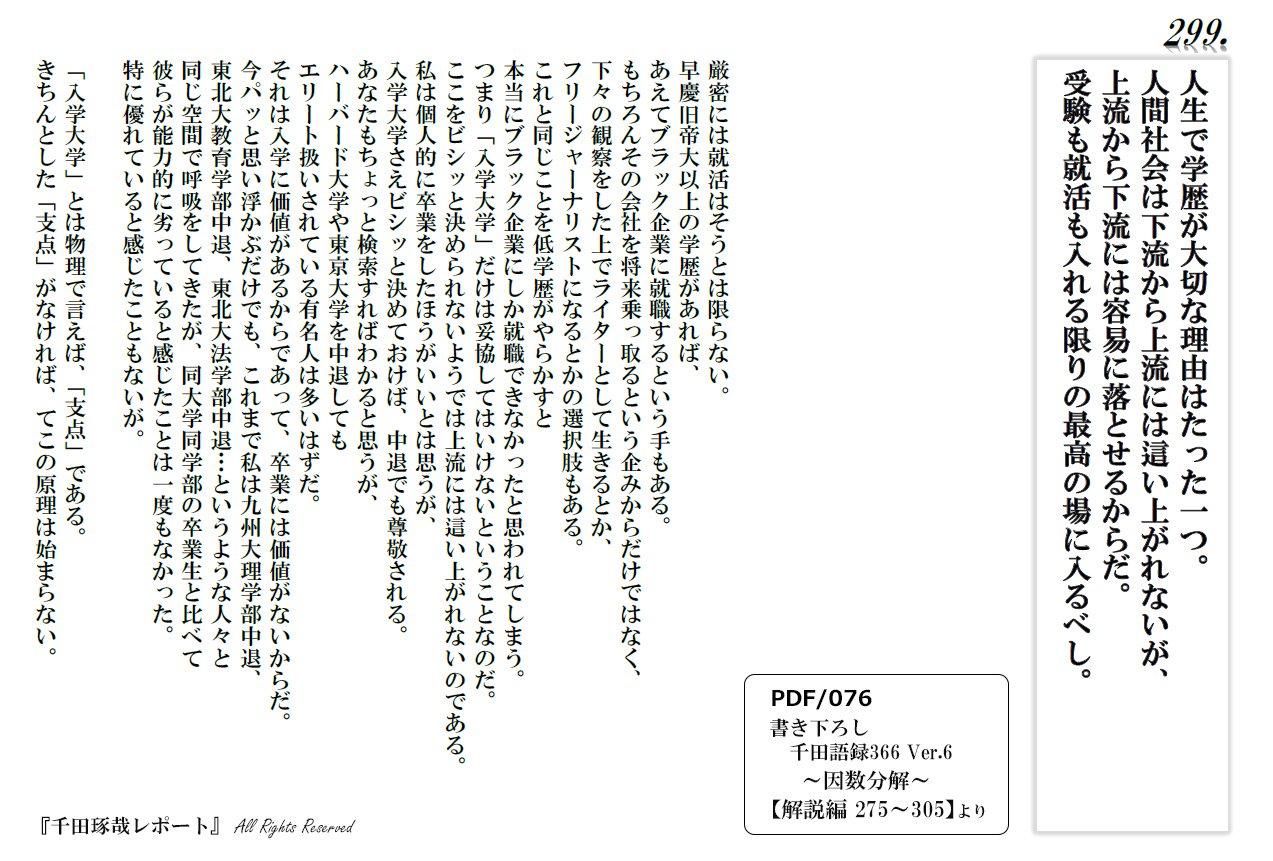 299.
人生で学歴が大切な理由はたった一つ。
人間社会は下流から上流には這い上がれないが、
上流から下流には容易に落とせるからだ。
受験も就活も入れる限りの最高の場に入るべし。
PDF/076
書き下ろし
千田語録366 Ver.6
～因数分解～
【解説編 275～305】より
厳密には就活はそうとは限らない。
早慶旧帝大以上の学歴があれば、
あえてブラック企業に就職するという手もある。
もちろんその会社を将来乗っ取るという企みからだけではなく、
下々の観察をした上でライターとして生きるとか、
フリージャーナリストになるとかの選択肢もある。
これと同じことを低学歴がやらかすと
本当にブラック企業にしか就職できなかったと思われてしまう。
つまり「入学大学」だけは妥協してはいけないということなのだ。
ここをビシッと決められないようでは上流には這い上がれないのである。
私は個人的に卒業をしたほうがいいとは思うが、
入学大学さえビシッと決めておけば、中退でも尊敬される。
あなたもちょっと検索すればわかると思うが、
ハーバード大学や東京大学を中退しても
エリート扱いされている有名人は多いはずだ。
それは入学に価値があるからであって、卒業には価値がないからだ。
今パッと思い浮かぶだけでも、これまで私は九州大理学部中退、
東北大教育学部中退、東北大法学部中退…というような人々と
同じ空間で呼吸をしてきたが、同大学同学部の卒業生と比べて
彼らが能力的に劣っていると感じたことは一度もなかった。
特に優れていると感じたこともないが。
「入学大学」とは物理で言えば、「支点」である。
きちんとした「支点」がなければ、てこの原理は始まらない。
『千田琢哉レポート』 All Rights Reserved